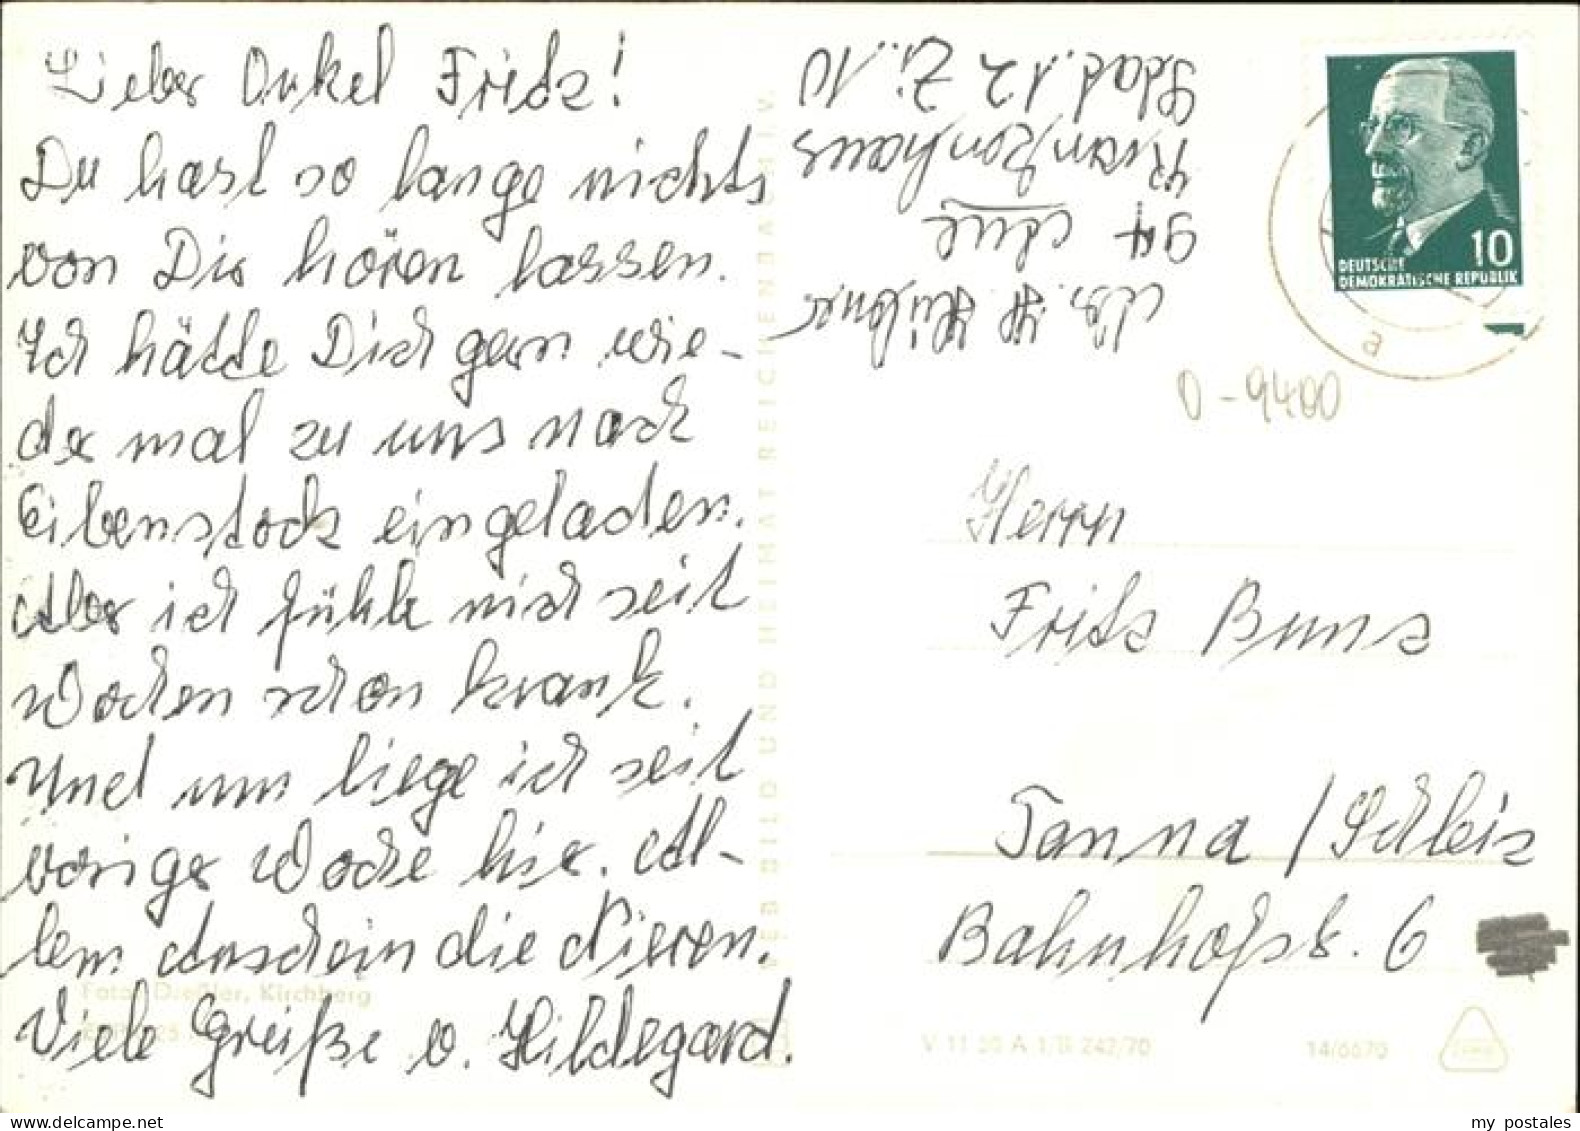 Lieber Onkel Fritz!
Du hast so lange nichts
von Dir hören lassen.
Ich hätte Dich gern wie-
der mal zu uns nach
Eibenstock eingeladen.
Aber ich fühle mich seit
Wochen schon krank.
Und nun liege ich seit
voriger Woche hier. Al-
lem Anschein die Nieren.
Viele Grüße v. Hildegard.
Foto: Dießler, Kirchberg
VEB BILD UND HEIMAT REICHENBACH I. V.
Abs. H. Hübner
94 Aue
Krankenhaus
Stat. 12 Zi. 10
10
DEUTSCHE
DEMOKRATISCHE REPUBLIK
a
0-9400
Herrn
Fritz Bunz
Tanna / Schleiz
Bahnhofstr. 6
V 11 50 A 1/B 247/70 14/6670
my postales